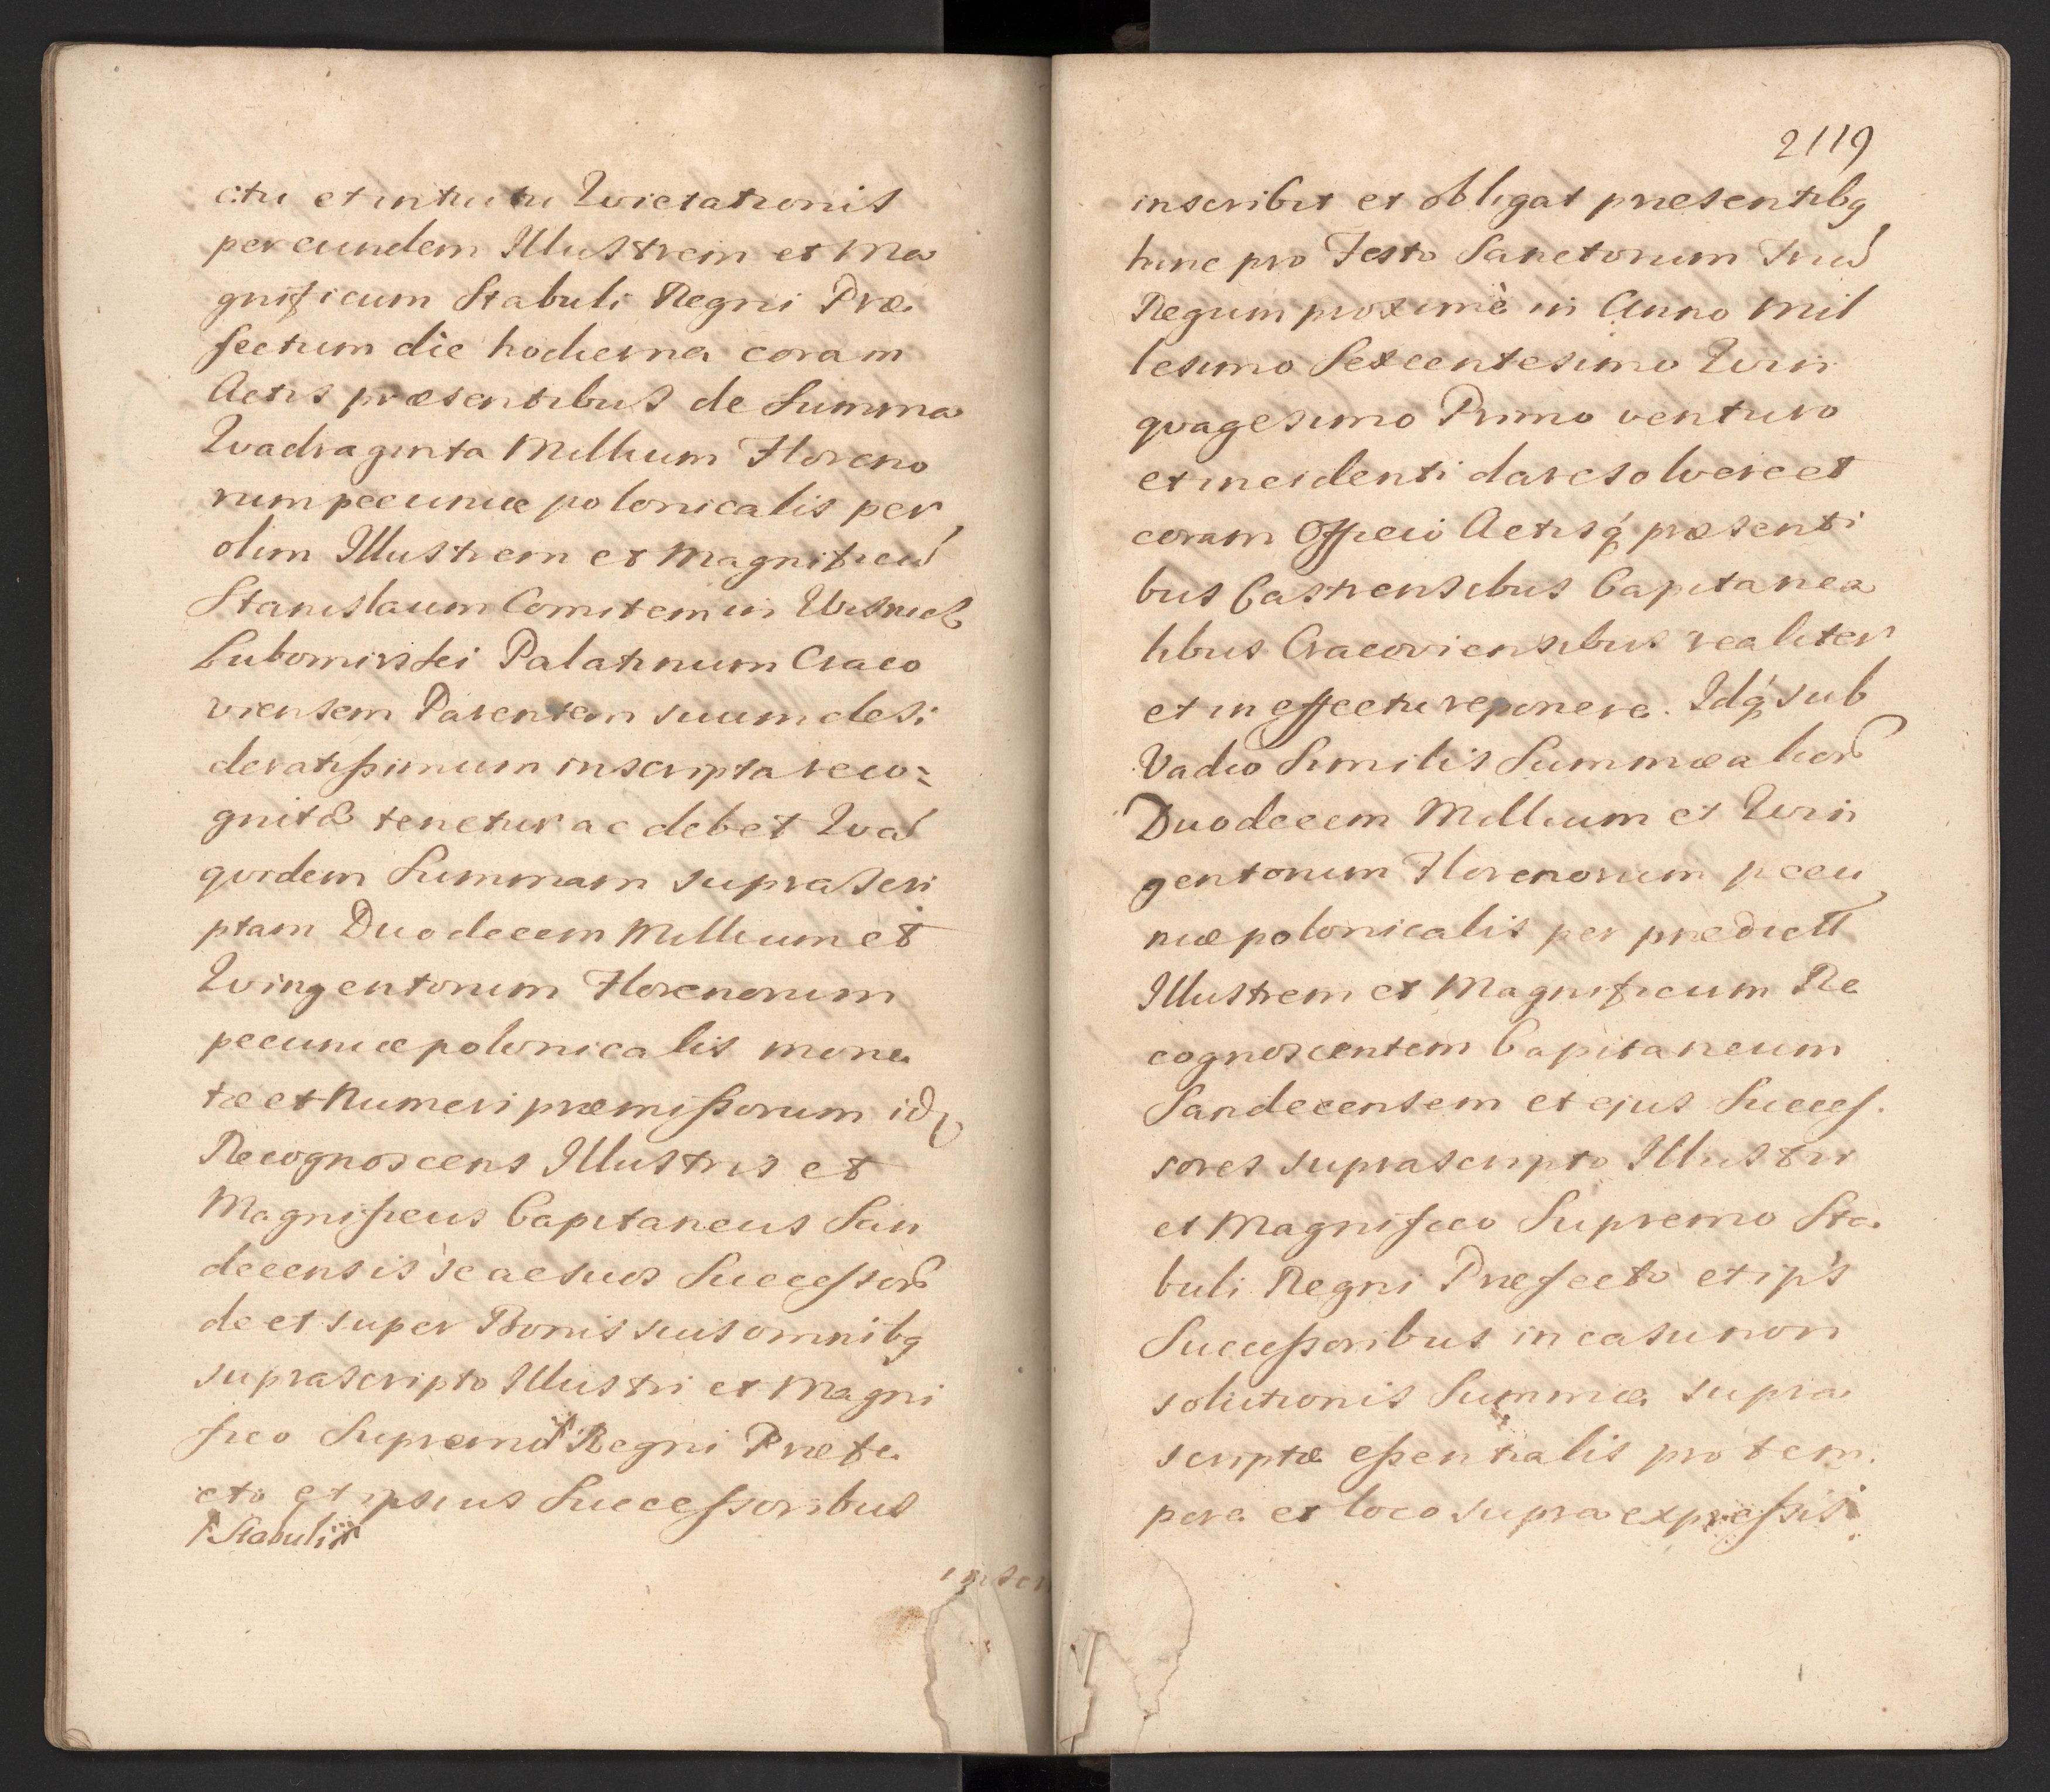 ctu et intuitu Qvietationis
per eundem Illustrem et Ma
gnificum Stabuli Regni Præ
fectum die hodierna coram
Actis præsentibus de Summa
Qvadraginta Millium Floreno
rum pecuniæ polonicalis per
olim Illustrem et Magnificu
Stanislaum Comitem in Wisnicz
Lubomirski Palatinum Craco
viensem Parentem suum desi
deratißimum inscripta reco=
gnita tenetur ac debet Qva
qvidem Summam suprascri
ptam Duodecem Millium et
Qvingentorum Florenorum
pecuniæ polonicalis mone
tæ et Numeri præmißorum idq
Recognoscens Illustris et
Magnificus Capitaneus San
decensis se ac suos Succeßor
de et super Bonis suis omnibq
suprascripto Illustri et Magni
fico Supremo Regni Præfe
cto et ipsius Succeßoribus
Stabuli
inscri
2119
inscribit et obligat præsentibq
hinc pro Festo Sanctorum Triu
Regum proximè in Anno Mil
lesimo Sexcentesimo Qvin
qvagesimo Primo venturo
et incidenti dare solvere et
coram Officio Actisq præsenti
bus Castrensibus Capitanea
libus Cracoviensibus realiter
et in effectu reponere. Idq sub
Vadio Similis Summæ alior
Duodecem Millium et Qvin
gentorum Florenorum pecu
niæ polonicalis per prædictt
Illustrem et Magnificum Re
cognoscentem Capitaneum
Sandecensem et ejus Succes
sores suprascripto Illustri
et Magnifico Supremo Sta
buli Regni Præfecto et ips
Succeßoribus in casu non
solutionis Summæ supra
scriptæ eßentialis pro tem
pore et loco supra expreßis